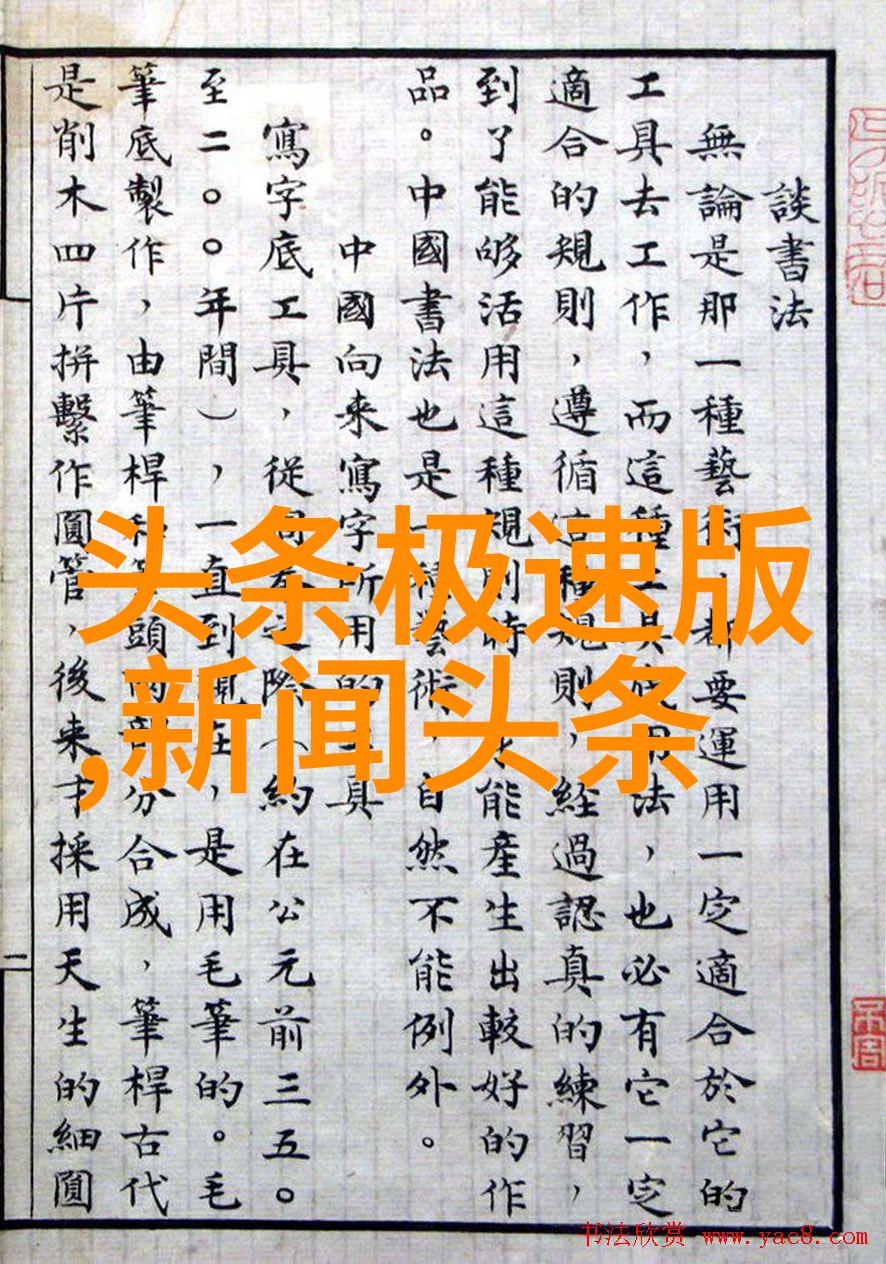 談書法
無論是那一種藝術，都要運用一定適合於它的
工具去工作，而這種工具底用法，也必有它一定
適合的規則，遵循這種規則，經過認真的練習，
到了能够活用這種規則時，才能產生出較好的作
品。中國書法也是一種藝術，自然不能例外。
中國向來寫字所用的工具
寫字底工具，從之際（約在公元前三五〇
至二〇〇年間），一直到現在，是用毛筆的。毛
筆底製作，由筆桿和筆頭兩部分合成，筆桿古代
是削木四片拼繫作圓管，後來才採用天生的細圓
二
头条极速版
,新闻头条
书法欣赏 www.yac8.com